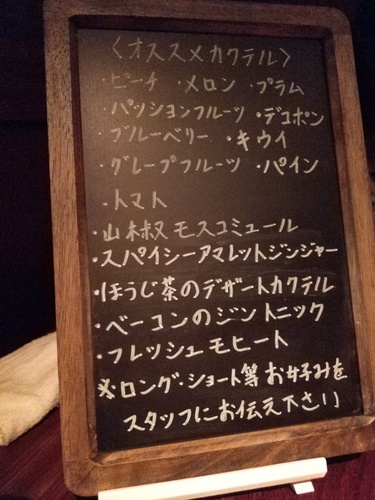 〈オススメカクテル〉
・ピーチ ・メロン ・プラム
・パッションフルーツ ・デコポン
・ブルーベリー ・キウイ
・グレープフルーツ ・パイン
・トマト
・山椒モスコミュール
・スパイシーアマレットジンジャー
・ほうじ茶のデザートカクテル
・ベーコンのジントニック
・フレッシュモヒート
※ロング・ショート等お好みを
スタッフにお伝え下さい